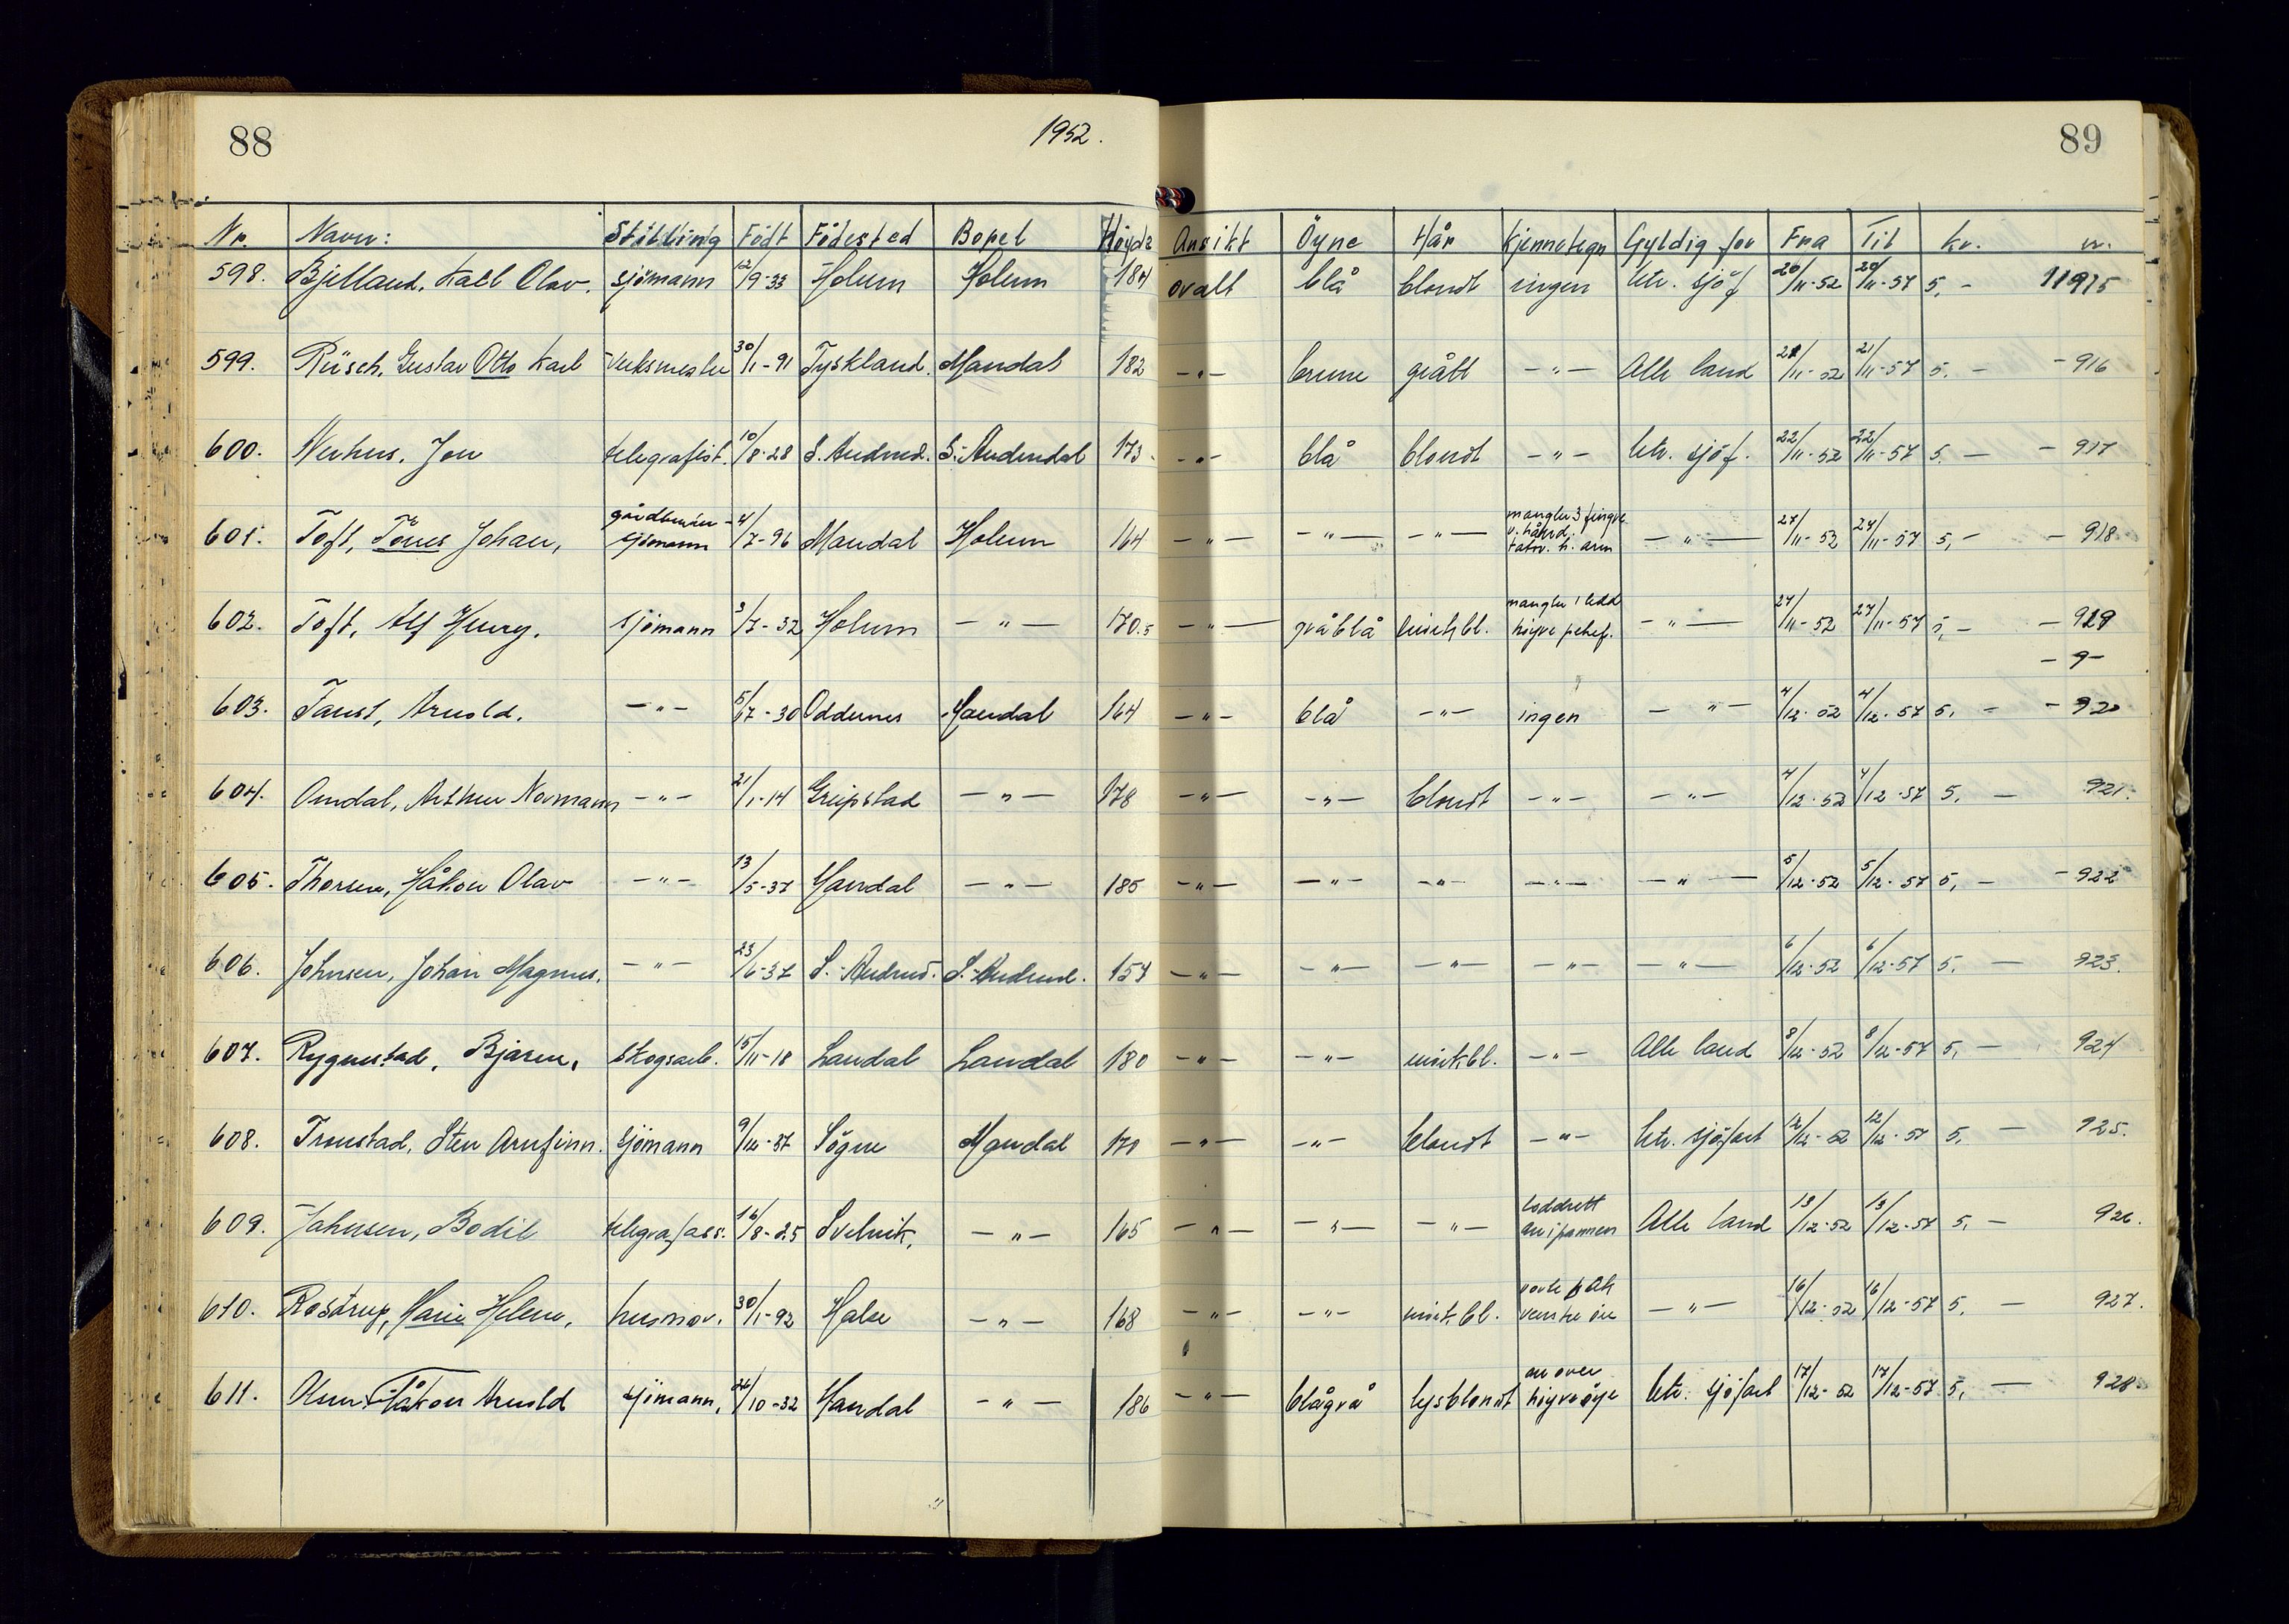 88
1952.
89
Nr. Navn: Stilling Födt Födested Bopel Höyde Ansikt Öyne Hår Kjennetegn Gyldig for Fra Til kr. nr.
598. Bjelland, Kall Olav. sjömann 12/9-33 Holum Holum 184 ovalt blå blondt ingen utv. sjöf 20/11-52 20/11-57 5,- 11915
599. Rüsch, Gustav Otto Karl Verksmester 30/1-91 Tyskland. Mandal 182 -"- brune grått -"- Alle land 21/11-52 21/11-57 5.- -916
600. Jon telegrafist. 10/8-28 S. Audned. S. Audnedal 173. -"- blå blondt -"- utv. sjöf. 22/11-52 22/11-57 5.- -917
601. Toft, Tönes Johan, sjömann 4/7-96 Mandal Holum 164 -"- -"- -"- mangler 3 fingre v. hånd. tatov. h. arm -"- 24/11-52 24/11-57 5,- -918
602. Toft, Alf Henry. sjömann 3/7-32 Holum -"- 170.5 -"- gråblå mörkbl. mangler 1 ledd höyre pekef. -"- 24/11-52 24/11-57 5,- -919
-9-
603. Faust, Arnold. -"- 5/7-30 Oddernes Mandal 164 -"- blå -"- ingen -"- 4/12-52 4/12-57 5,- -920
604. Omdal, Arthur Normann -"- 21/1-14 Greipstad -"- 178 -"- -"- blondt -"- -"- 4/12-52 4/12-57 5,- 921.
605. Thorsen, Håkon Olav -"- 13/5-37 Mandal -"- 185 -"- -"- -"- -"- -"- 5/12-52 5/12-57 5,- -922
606. Johnsen, Johan Magnus. -"- 23/6-37 S.-Audned. S.-Audned. 154 -"- -"- -"- -"- -"- 6/12-52 6/12-57 5.- 923.
607. Rygnestad, Bjarne, skogsarb. 15/11-18 Laudal Laudal 180 -"- -"- mörkbl. -"- Alle land 8/12-52 8/12-57 5,- 924
608. Tronstad, Sten Arnfinn. sjömann 9/12-37 Sögne Mandal 170 -"- -"- blondt -"- utv. sjöfart 12/12-52 12/12-57 5,- 925.
609. Johnsen, Bodil telegrafass. 16/8-25 Svelvik, -"- 165 -"- -"- -"- loddrett arr i pannen Alle land 13/12-52 13/12-57 5,- 926.
610. Rostrup, Marie Helene, husmor. 30/1-92 Halse -"- 168 -"- -"- mörkbl. vorte venstre öie -"- 16/12-52 16/12-57 5.- 927.
611. Olsen Håkon Arnold sjömann, 26/10-32 Mandal -"- 186 -"- blågrå lysblondt arr over höyre öye utv. sjöfart 17/12-52 17/12-57 5,- 928